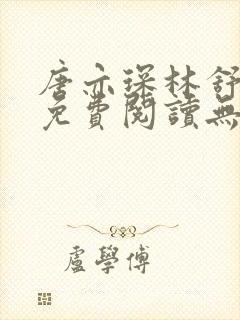 唐亦琛林舒
免費閱讀無
盧學傅